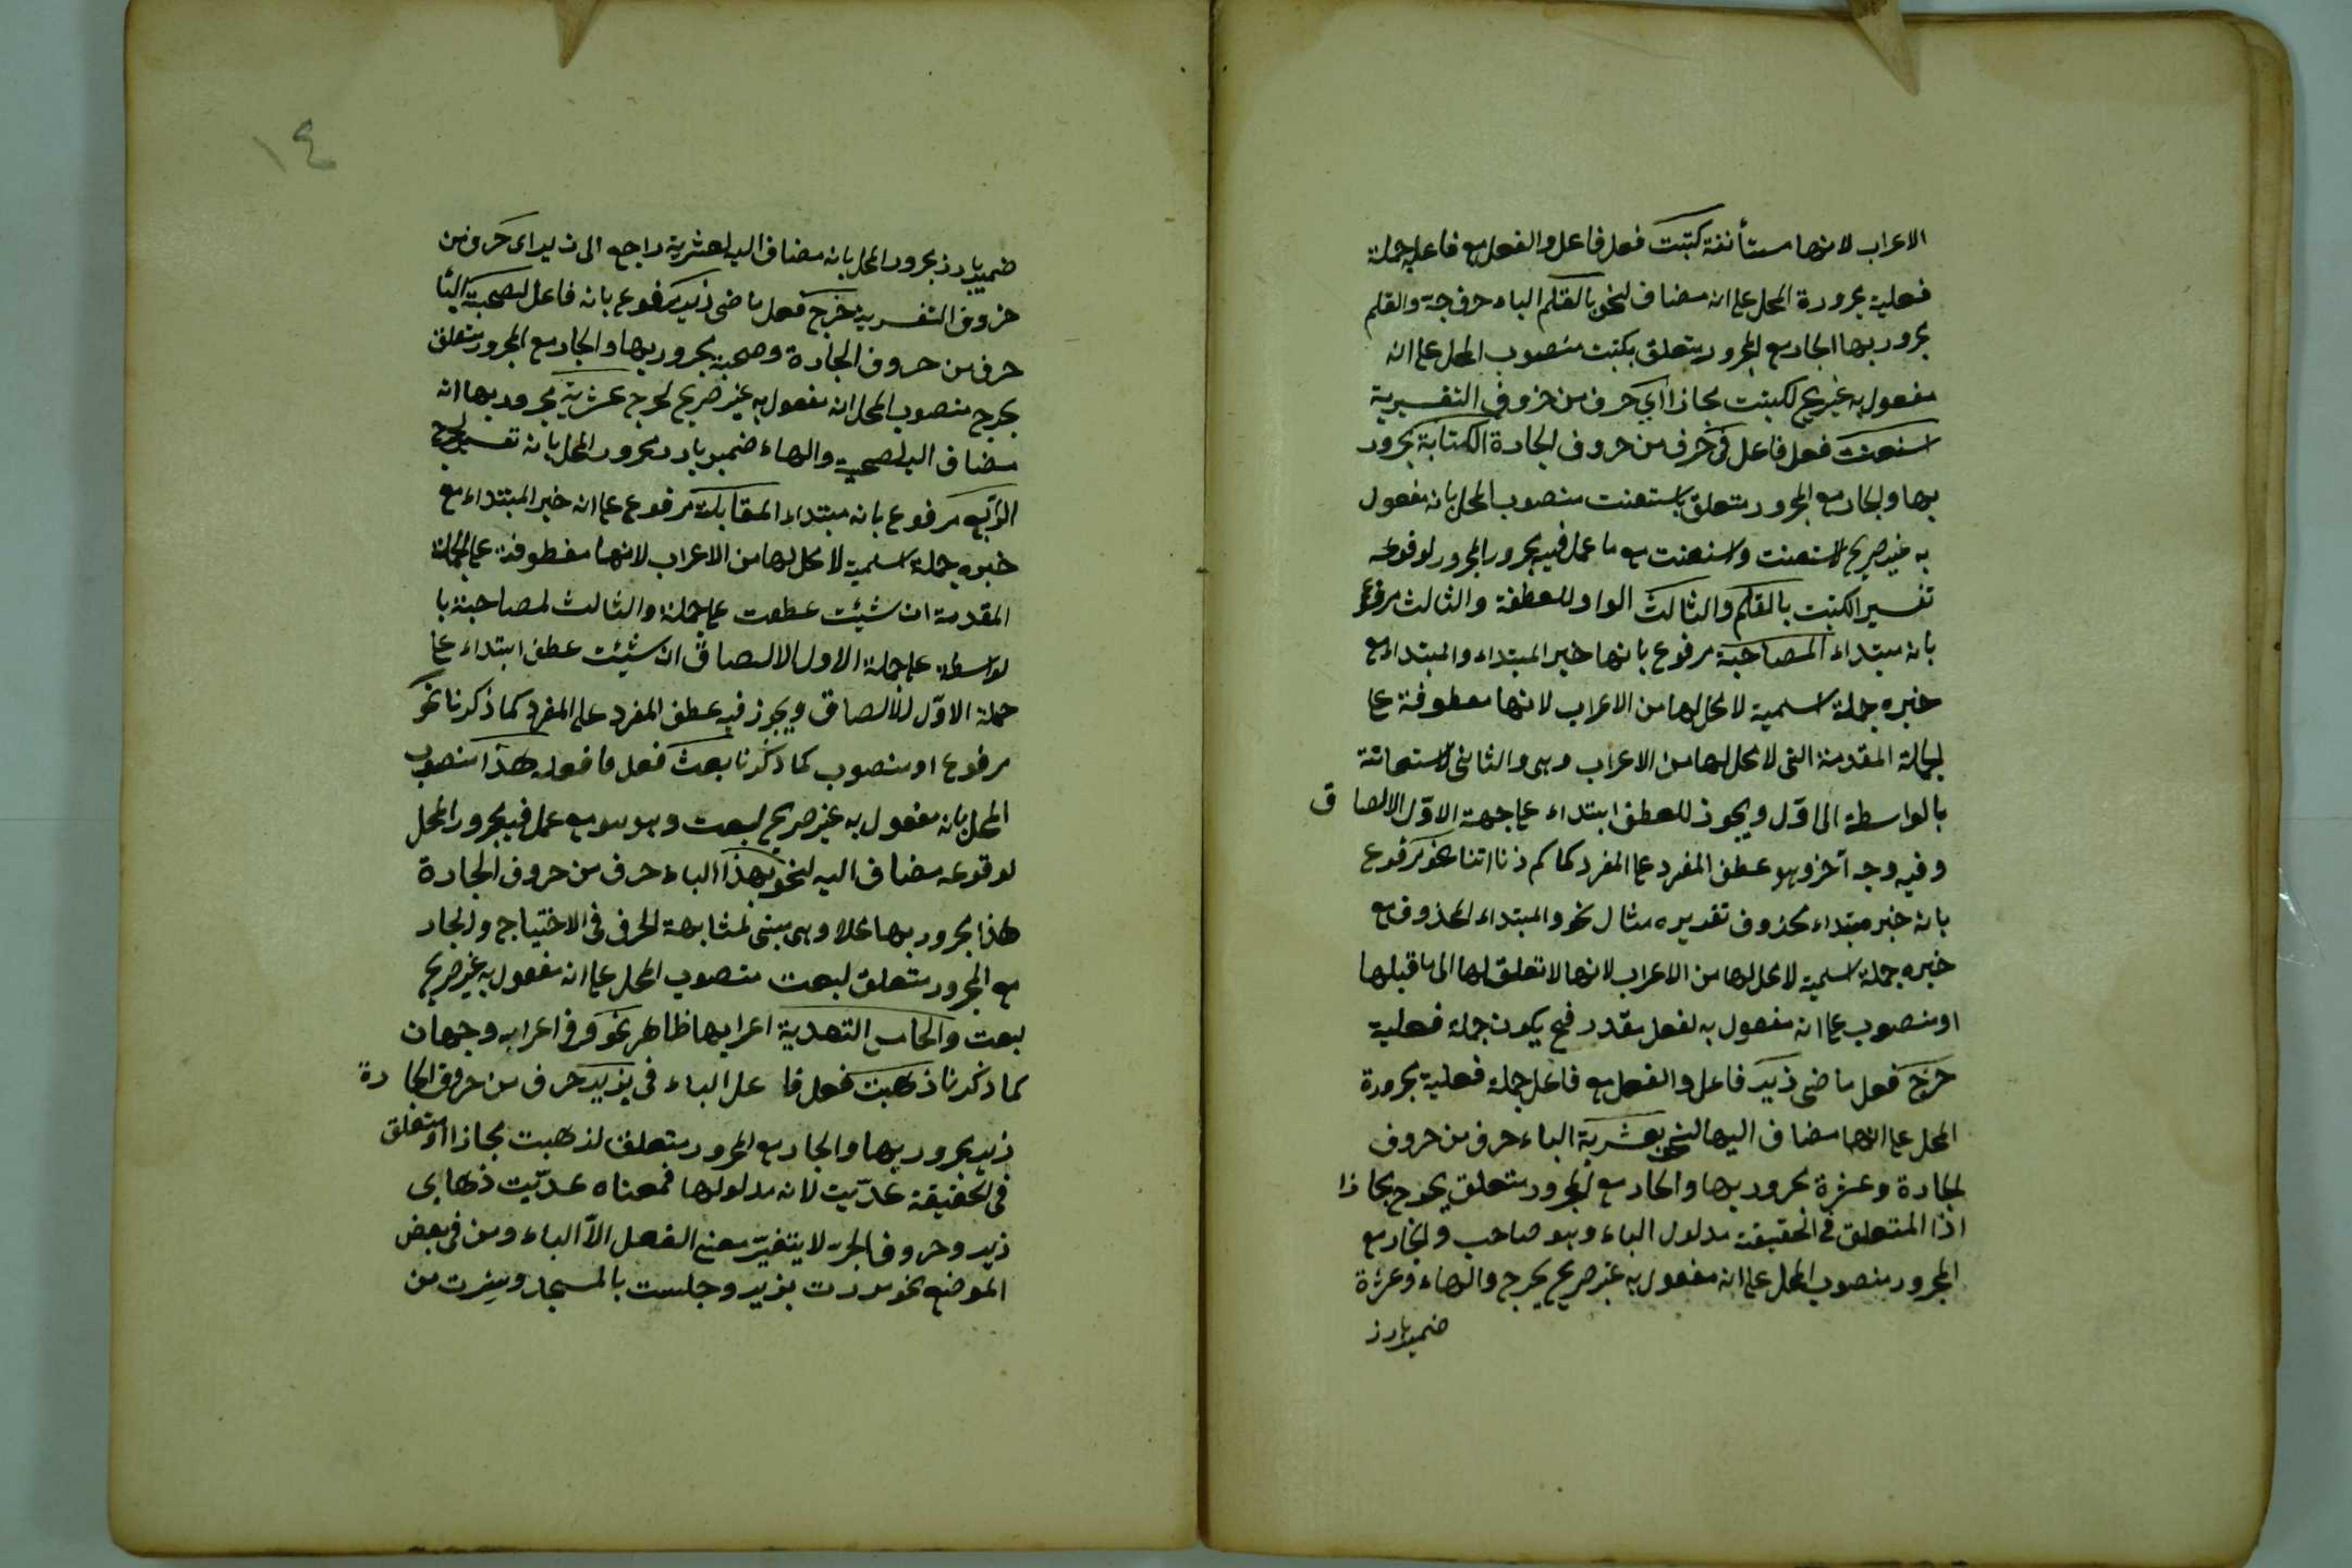 الاعراب لانها مستأنفة كتبت فعل فاعل والفعل مع فاعله جملة
فعلية مجرورة المحل على انه مضاف لنحو بالقلم الباء حرف جر والقلم
مجرور بها الجار مع المجرور متعلق بكتبت منصوب المحل على انه
مفعول به غير صريح لكتبت مجازا اي حرف من حروف التفسيرية
استعنت فعل فاعل في حرف من حروف الجارة الكتابة مجرور
بها والجار مع المجرور متعلق باستعنت منصوب المحل بانه مفعول
به غير صريح لاستعنت واستعنت مع ما عمل فيه مجرور المجرور لوقوعه
تفسير الكتبت بالقلم والثالث الواو للعطفة والثالث مرفوع
بانه مبتداء المصاحبة مرفوع بانها خبر المبتداء والمبتداء مع
خبره جملة اسمية لا محل لها من الاعراب لانها معطوفة على
الجملة المقدمة التى لا محل لها من الاعراب وهى والثانى الاستعانة
بالواسطة الى اول ويجوز للعطف ابتداء على جهة الاول الالصاق
وفيه وجه آخر وهو عطف المفرد على المفرد كما نحو مرفوع
بانه خبر مبتداء محذوف تقديره مثال نحو والمبتداء المحذوف مع
خبره جملة اسمية لا محل لها من الاعراب لانها لا تعلق لها الى ما قبلها
او منصوب على انه مفعول به لفعل مقدر فح يكون جملة فعلية
خرج فعل ماضى زيد فاعل والفعل مع فاعل جملة فعلية مجرورة
المحل على انها مضاف اليها لنحو بعشرته الباء حرف من حروف
الجارة وعشرة مجرور بها والجار مع المجرور متعلق بخرج مجازا
اذا المتعلق فى الحقيقة مدلول الباء وهو صاحب والجار مع
المجرور منصوب المحل على انه مفعول به غير صريح لخرج والهاء وعشرة
ضمير بارز
١٤
ضمير بارز مجرور المحل بانه مضاف اليه لعشرية راجع الى زيد اى حرف من
حروف التفسرية خرج فعل ماضى زيد مرفوع بانه فاعل بصحبته الباء
حرف من حروف الجارة وصحبة مجرور بها والجار مع المجرور متعلق
بخرج منصوب المحل انه مفعول به غير صريح لخرج عشرته مجرور بها انه
مضاف اليه لصحبة والهاء ضمير بارز مجرور المحل بانه تفسير لخرج
الرابع مرفوع بانه مبتداء المقابلة مرفوع على انه خبر المبتداء مع
خبره جملة اسمية لا محل لها من الاعراب لانها معطوفة على الجملة
المقدمة ان شيئت عطفت على جملة والثالث لمصاحبة با
لواسطة على جملة الاول الالصاق ان شيئت عطف ابتداء على
جملة الاول للالصاق ويجوز فيه عطف المفرد على المفرد كما ذكرنا نحو
مرفوع او منصوب كما ذكرنا بعت فعل فاعل هذا منصوب
المحل بانه مفعول به غير صريح لبعت وهو مع عمل فيه مجرور المحل
لوقوعه مضاف اليه لنحو بهذا الباء حرف من حروف الجارة
هذا مجرور بها محلا وهى مبنى لمشابهة الحرف فى الاحتياج والجار
مع المجرور متعلق لبعت منصوب المحل على انه مفعول به غير صريح
لبعت والخامس التعدية اعرابها ظاهر نحو فى اعرابه وجهان
كما ذكرنا ذهبت فعل فاعل الباء فى بزيد حرف من حروف الجارة
زيد مجرور بها والجار مع المجرور متعلق لذهبت مجازا او متعلق
فى الحقيقة عديت لانه مدلولها فمعناه عديت ذهابى
زيد وحروف الجر لا يتغير معنى الفعل الا الباء ومن فى بعض
الموضع نحو مررت بزيد وجلست بالمسجد وسرت من